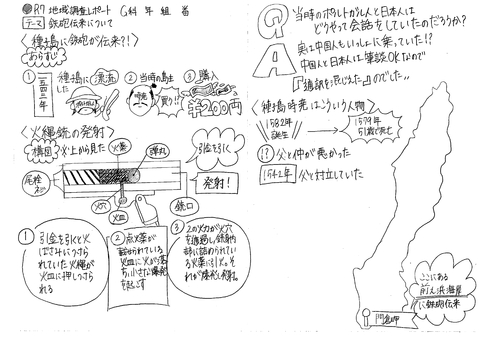 R7 地域調査レポート G科 年 組 番
テーマ 鉄砲伝来について
〈種子島に鉄砲が伝来?!〉
あらすじ
① 一五四三年
種子島に漂流した
② 当時の島主
買う!!
③ 購入
¥200円
〈火縄銃の発射〉
構図 火上から見た
火薬
弾丸
引金を引く
発射!
尾栓ネジ
火穴
火皿
銃口
① 引金を引くと火ばさみにつけられていた火縄が火皿に押しつけられる
② 点火薬が詰められている火皿に火が落ち、小さな爆発を起こす
③ 2の火力が火穴を通過し、銃身内部に詰められている火薬に引火。それが爆発し発射。
Q 当時のポルトガル人と日本人は
どうやって会話をしていたのだろうか?
A 実は中国人もいっしょに乗っていた!?
中国人と日本人は筆談OKなので
『通訳を混じえた』のでした。
〈種子島時堯はこういう人物〉
1528年誕生
1579年
51歳で死亡
!? 父と仲が悪かった
1542年 父と対立していた
ここにある
前之浜海岸
に鉄砲伝来
門倉岬